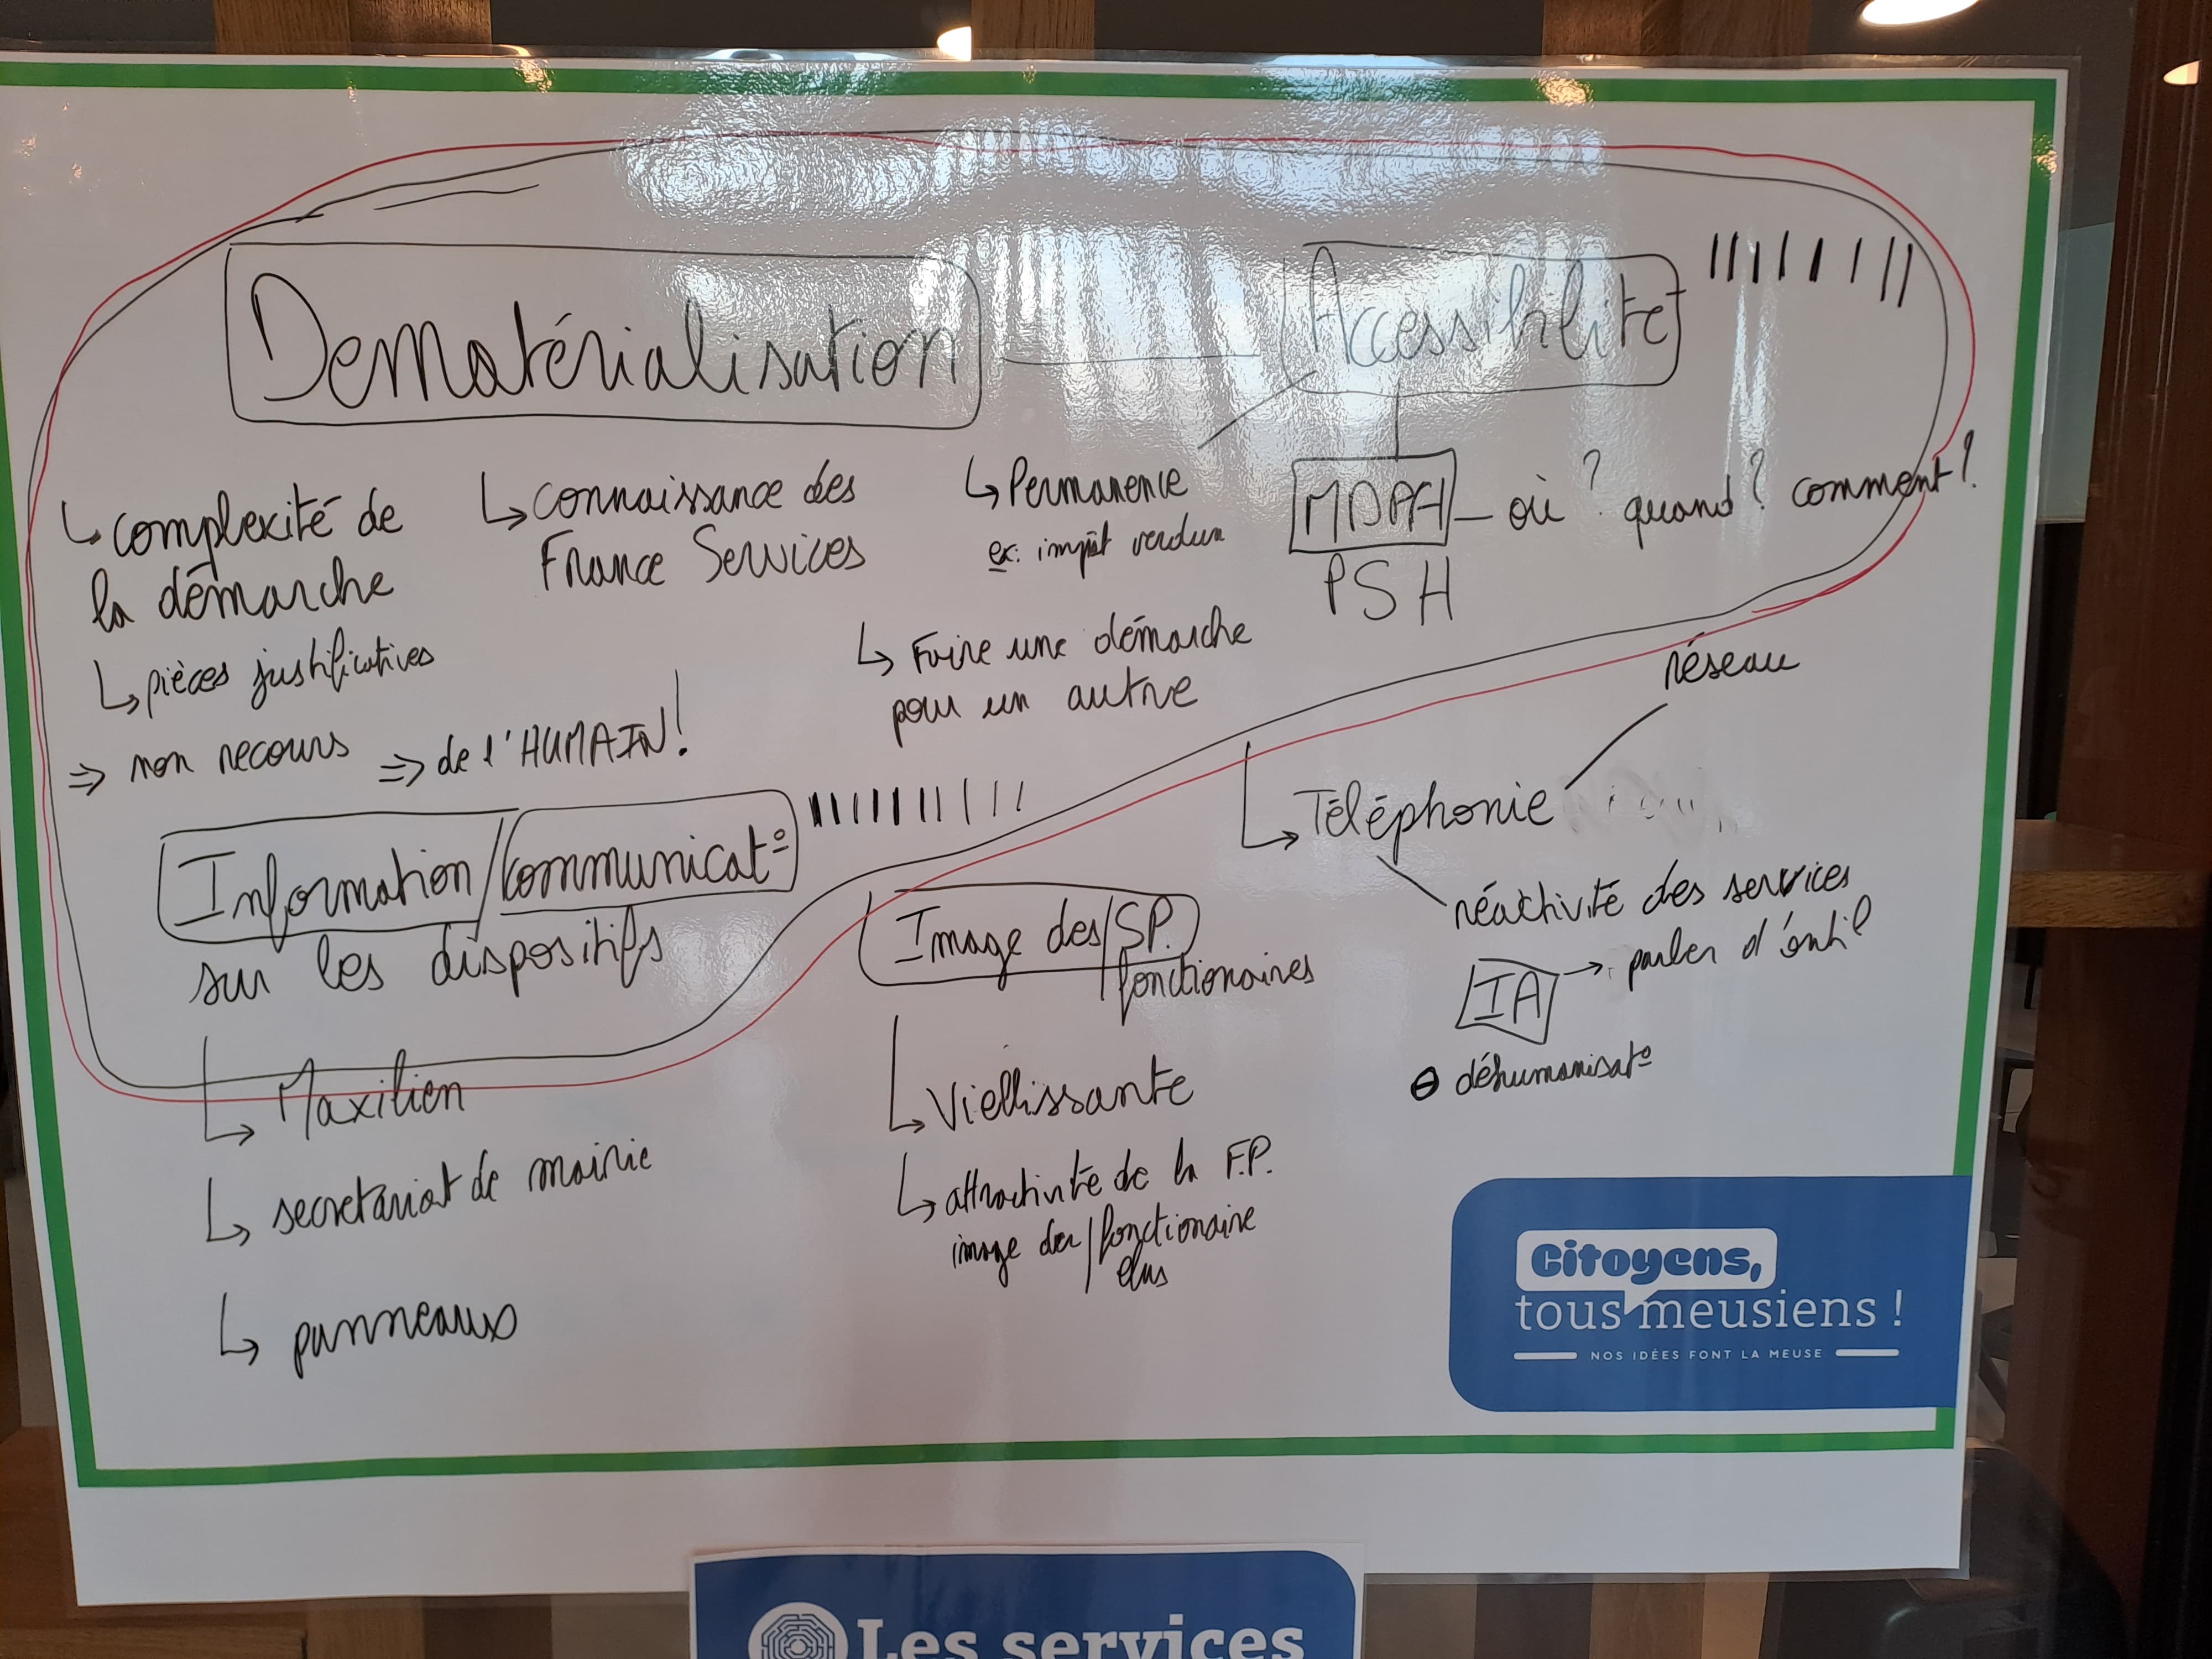 Dematérialisation
Accessibilité
↳ complexité de
la démarche
↳ pièces justificatives
⇒ non recours
⇒ de l'HUMAIN!
↳ connaissance des
France Services
↳ Permanence
ex: impôt verdun
MDPH — où ? quand ? comment ?
PSH
↳ Faire une démarche
pour un autre
réseau
↳ Téléphonie
réactivité des services
IA → parler d'outil
⊖ déhumanisat°
Information/communicat°
sur les dispositifs
↳ Maxilien
↳ secretariat de mairie
↳ panneaux
Image des/SP.
/fonctionaires
↳ Viellissante
↳ attractivité de la F.P.
image des/fonctionaire
elus
Citoyens,
tous meusiens !
NOS IDÉES FONT LA MEUSE
Les services